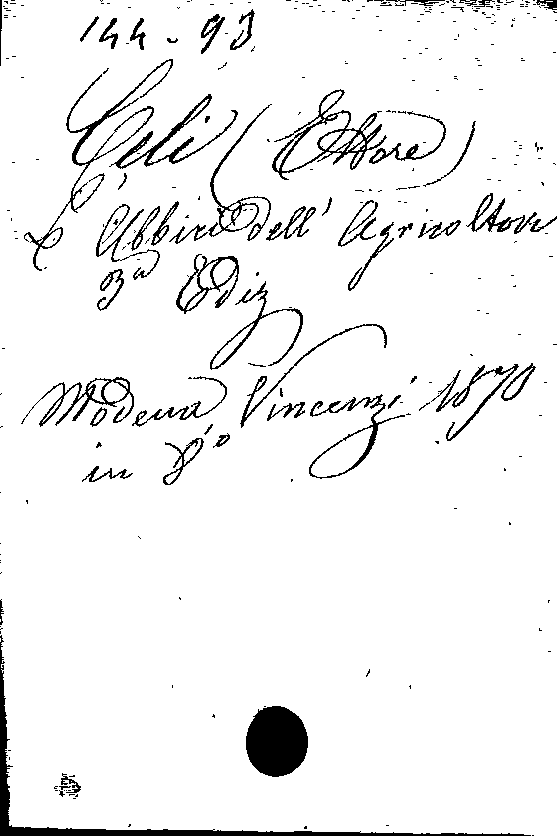 144 - 93
Celi (Ettore)
L'Abbici dell' Agricoltore
3a Ediz
Modena Vincenzi 1870
in 8o